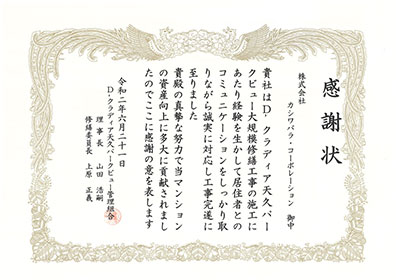 感謝状
株式会社
カシワバラ・コーポレーション 御中
貴社はD・クラディア天久パー
クビュー大規模修繕工事の施工に
あたり経験を生かして居住者との
コミュニケーションをしっかり取
りながら誠実に対応し工事完遂に
至りました
貴殿の真摯な努力で当マンション
の資産向上に多大に貢献されまし
たのでここに感謝の意を表します
令和二年六月二十一日
D・クラディア天久パークビュー管理組合
理事長 山田 浩嗣
修繕委員長 上原 正義